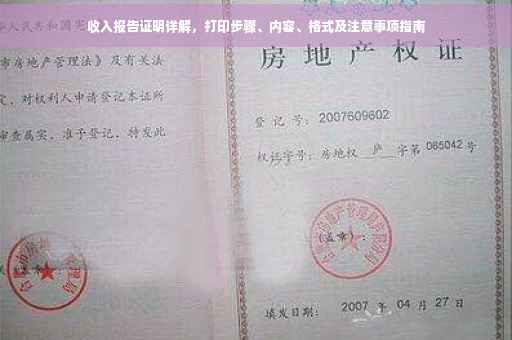 收入报告证明详解，打印步骤、内容、格式及注意事项指南
华人民共和国宪
市房地产管理法》及有关法
定，对权利人申请登记本证所
审查属实，准予登记，特发此
房地产权
登记号：2007609602
权证字号：房地权 庐 字第 065042 号
(盖章)：
填发日期：2007 年 04 月 27 日